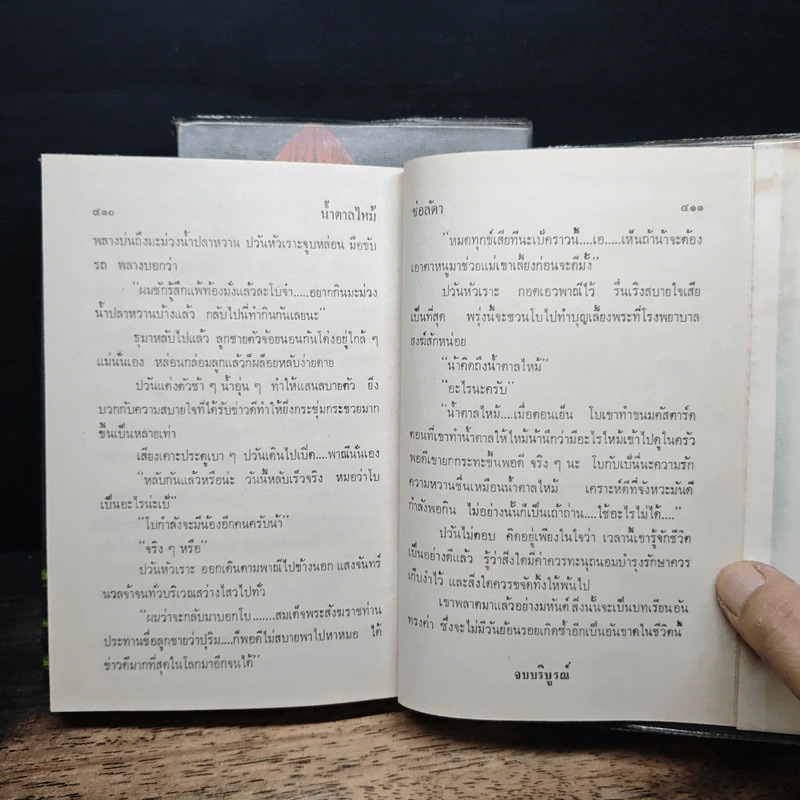 ๔๑๐ น้ำตาลไหม้
พลางบ่นถึงมะม่วงน้ำปลาหวาน ปวันหัวเราะจูบหล่อน มือขับ
รถ พลางบอกว่า
"ผมชักรู้สึกแพ้ท้องมั่งแล้วละโบจ๋า.....อยากกินมะม่วง
น้ำปลาหวานบ้างแล้ว กลับไปนี่ทำกินกันเลยนะ"
ธุมาหลับไปแล้ว ลูกชายตัวจ้อยนอนก้นโด่งอยู่ใกล้ ๆ
แม่นั่นเอง หล่อนกล่อมลูกแล้วก็ผล็อยหลับง่ายดาย
ปวันแต่งตัวช้า ๆ น้ำอุ่น ๆ ทำให้แสนสบายตัว ยิ่ง
บวกกับความสบายใจที่ได้รับข่าวดีทำให้ยิ่งกระชุ่มกระชวยมาก
ขึ้นเป็นหลายเท่า
เสียงเคาะประตูเบา ๆ ปวันเดินไปเปิด....พาณีนั่นเอง
"หลับกันแล้วหรือน่ะ วันนี้หลับเร็วจริง หมอว่าโบ
เป็นอะไรน่ะเป้"
"โบกำลังจะมีน้องอีกคนครับน้า"
"จริง ๆ หรือ"
ปวันหัวเราะ ออกเดินตามพาณีไปข้างนอก แสงจันทร์
นวลจ้าจนทั่วบริเวณสว่างไสวไปทั่ว
"ผมว่าจะกลับมาบอกโบ.......สมเด็จพระสังฆราชท่าน
ประทานชื่อลูกชายว่าปุริม....ก็พอดีไม่สบายพาไปหาหมอ ได้
ข่าวดีมากที่สุดในโลกมาอีกจนได้"
ช่อลัดา ๔๑๑
"หมดทุกข์เสียทีนะเป้คราวนี้....เอ.....เห็นถ้าน้าจะต้อง
เอาตาหนูมาช่วยแม่เขาเลี้ยงก่อนจะดีมั้ง"
ปวันหัวเราะ กอดเอวพาณีไว้ รื่นเริงสบายใจเสีย
เป็นที่สุด พรุ่งนี้จะชวนโบไปทำบุญเลี้ยงพระที่โรงพยาบาล
สงฆ์สักหน่อย
"น้าคิดถึงน้ำตาลไหม้"
"อะไรนะครับ"
"น้ำตาลไหม้....เมื่อตอนเย็น โบเขาทำขนมคัสตาร์ด
ตอนที่เขาทำน้ำตาลให้ไหม้น้านึกว่ามีอะไรไหม้เข้าไปดูในครัว
พอดีเขายกกระทะขึ้นพอดี จริง ๆ นะ โบกับเป้นี่นะความรัก
ความหวานชื่นเหมือนน้ำตาลไหม้ เคราะห์ดีที่จังหวะมันดี
กำลังพอกิน ไม่อย่างนั้นก็เป็นเถ้าถ่าน....ใช้อะไรไม่ได้...."
ปวันไม่ตอบ คิดอยู่เพียงในใจว่า เวลานี้เขารู้จักชีวิต
เป็นอย่างดีแล้ว รู้ว่าสิ่งใดมีค่าควรทะนุถนอมบำรุงรักษาควร
เก็บงำไว้ และสิ่งใดควรขจัดทิ้งให้พ้นไป
เขาพลาดมาแล้วอย่างมหันต์ สิ่งนั้นจะเป็นบทเรียนอัน
ทรงค่า ซึ่งจะไม่มีวันย้อนรอยเกิดซ้ำอีกเป็นอันขาดในชีวิตนี้
จบบริบูรณ์